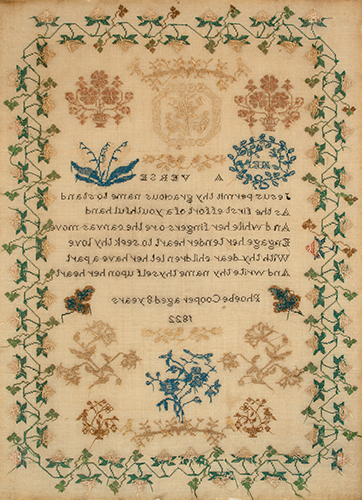 A VERSE
Jesus permit thy gracious name to stand
As the first effort of a youthful hand
And while her fingers ore the canvas move
Engage her tender heart to seek thy love
With thy dear children let her have a part
And write thy name thyself upon her heart
Phoebe Cooper aged 8 years
1822